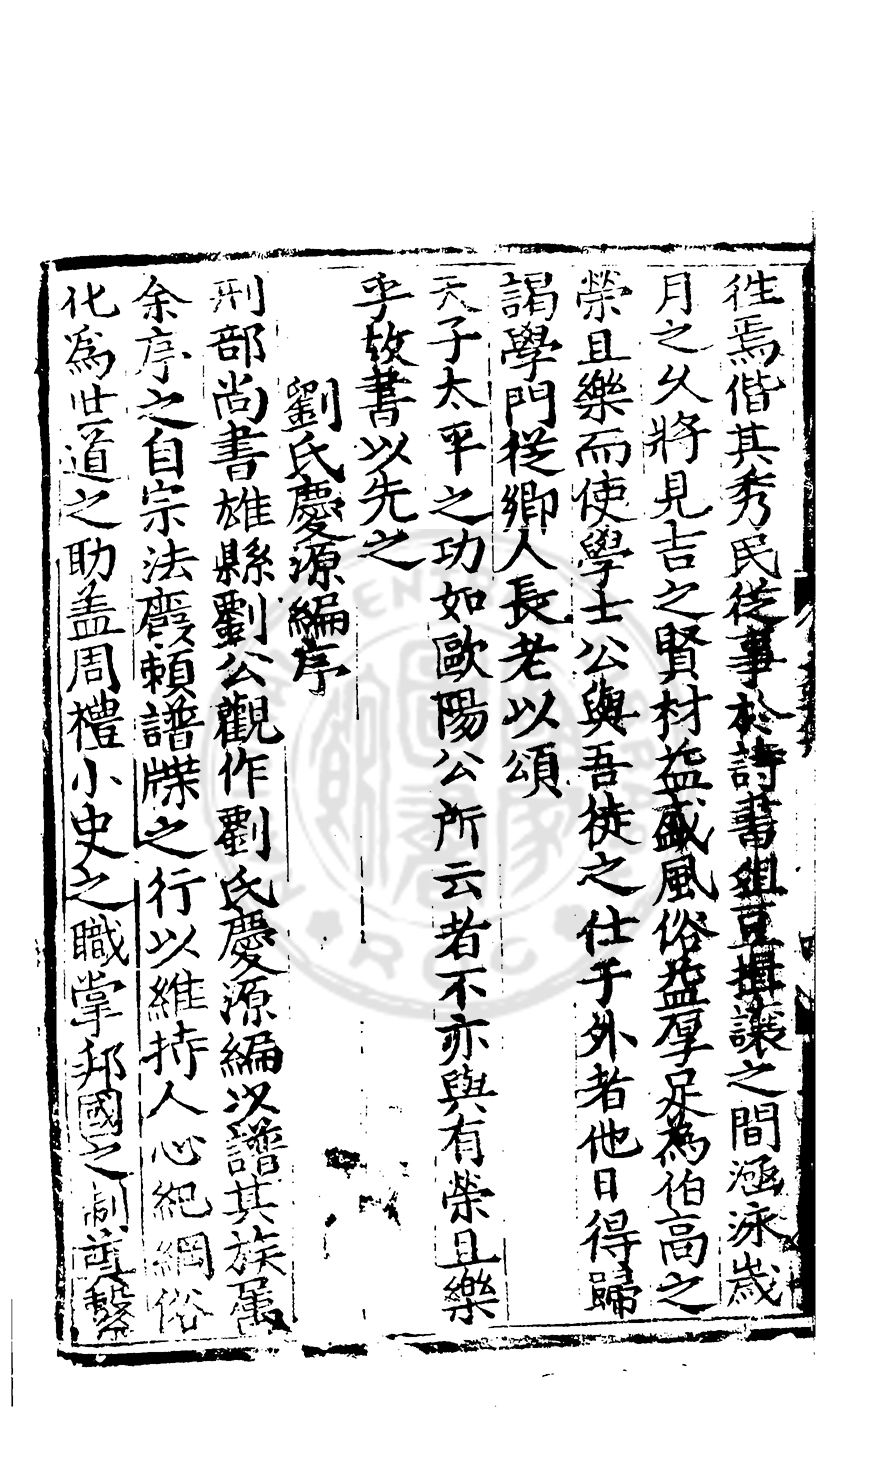 徃焉偕其秀民從事於詩書俎豆揖讓之間涵泳歲
月之久將見吉之賢材益盛風俗益厚足為伯高之
榮且樂而使學士公與吾徒之仕于外者他日得歸
謁學門從鄉人長老以頌
天子太平之功如歐陽公所云者不亦與有榮且樂
乎故書以先之
劉氏慶源編序
刑部尚書雄縣劉公觀作劉氏慶源編以譜其族屬
余序之自宗法廢頼譜牒之行以維持人心紀綱俗
化為世道之助盖周禮小史之職掌邦國之制奠繫